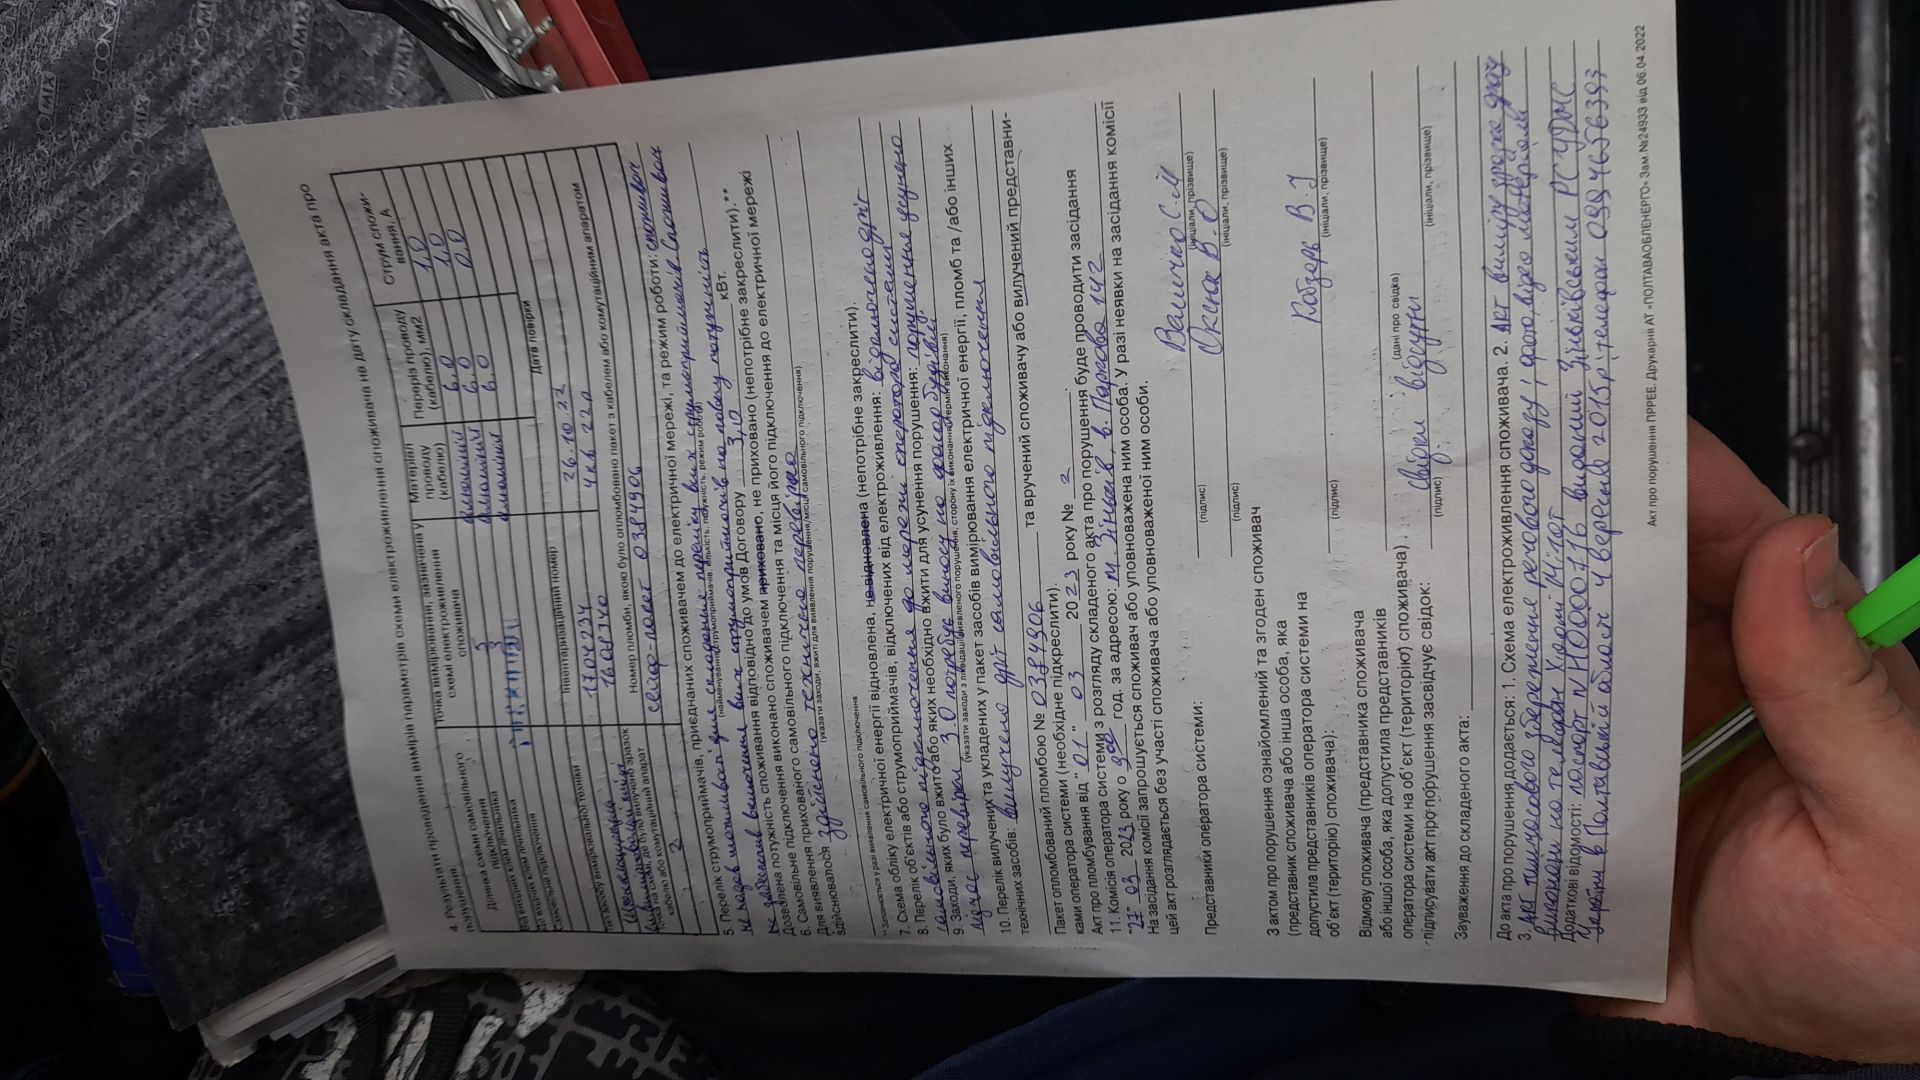 4. Результати проведення вимірів параметрів схеми електроживлення споживача на дату складання акта про
порушення:
Ділянка схеми самовільного підключення
Точка вимірювання, зазначена у схемі електроживлення споживача
Матеріал проводу (кабелю)
Переріз проводу (кабелю), мм2
Струм споживання, А
5 алюміній 6.0 1,0
3 алюміній 6.0 1,0
алюміній 6.0 0.0
Самовільне підключення
Інвентаризаційний номер
Дата повірки
1704234 26.10.22
16087340 4 кв 22р
Номер пломби, якою було опломбовано пакет з кабелем або комутаційним апаратом
кабелю або комутаційний апарат
2 сейф-пакет 0384906
5. Перелік струмоприймачів, приєднаних споживачем до електричної мережі, та режим роботи: споживач
не надав можливості для складання переліку всіх струмоприймачів Споживач
(найменування струмоприймачів, кількість, потужність, режим роботи)
не забезпечив включення всіх струмоприймачів на повну потужність
Дозволена потужність споживання відповідно до умов Договору 3,0 кВт.
6. Самовільне підключення виконано споживачем приховано, не приховано (непотрібне закреслити).**
Для виявлення прихованого самовільного підключення та місця його підключення до електричної мережі
здійснювалося здійснено технічною перевіркою
(указати заходи, вжиті для виявлення порушення/місця самовільного підключення)
** заповнюється у разі виявлення самовільного підключення.
7. Схема обліку електричної енергії відновлена, не відновлена (непотрібне закреслити).
8. Перелік об'єктів або струмоприймачів, відключених від електроживлення: відключено дріт
самовільного підключення до мережі оператора системи
9. Заходи, яких було вжито або яких необхідно вжити для усунення порушення: порушення усунено
під час перевірки З.О потребує виносу на фасад будівлі
(указати заходи з ліквідації виявленого порушення, сторону їх виконання, термін виконання)
10. Перелік вилучених та укладених у пакет засобів вимірювання електричної енергії, пломб та /або інших
технічних засобів: вилучено дріт самовільного підключення
Пакет опломбований пломбою № 0384906 та вручений споживачу або вилучений представни-
ками оператора системи (необхідне підкреслити).
Акт про пломбування від "01" 03 2023 року № 2
11. Комісія оператора системи з розгляду складеного акта про порушення буде проводити засідання
"27" 03 2023 року о 9 00 год. за адресою: м. Зіньків, в. Парова 142
На засідання комісії запрошується споживач або уповноважена ним особа. У разі неявки на засідання комісії
цей акт розглядається без участі споживача або уповноваженої ним особи.
Представники оператора системи:
Величко С.М
(підпис) (ініціали, прізвище)
Оксена В.О
(підпис) (ініціали, прізвище)
З актом про порушення ознайомлений та згоден споживач
(представник споживача або інша особа, яка
допустила представників оператора системи на
об'єкт (територію) споживача):
Кобзарь В.І
(підпис) (ініціали, прізвище)
Відмову споживача (представника споживача
або іншої особи, яка допустила представників
оператора системи на об'єкт (територію) споживача)
підписувати акт про порушення засвідчує свідок:
(дані про свідка)
свідки відсутні
(підпис) (ініціали, прізвище)
Зауваження до складеного акта:
До акта про порушення додається: 1. Схема електроживлення споживача. 2. Акт вилучу зразка дроту
3. Акт тимчасового збереження речового доказу, фото, відео матеріали
виконані на телефон Xiaomi Mi10T
Додаткові відомості: паспорт № НО000716 виданий Зіньківським РС УДМС
України в Полтавській області 4 вересня 2015р; телефон 0994656393
Акт про порушення ПРРЕЕ. Друкарні АТ «ПОЛТАВАОБЛЕНЕРГО» Зам.№24933 від 06.04.2022